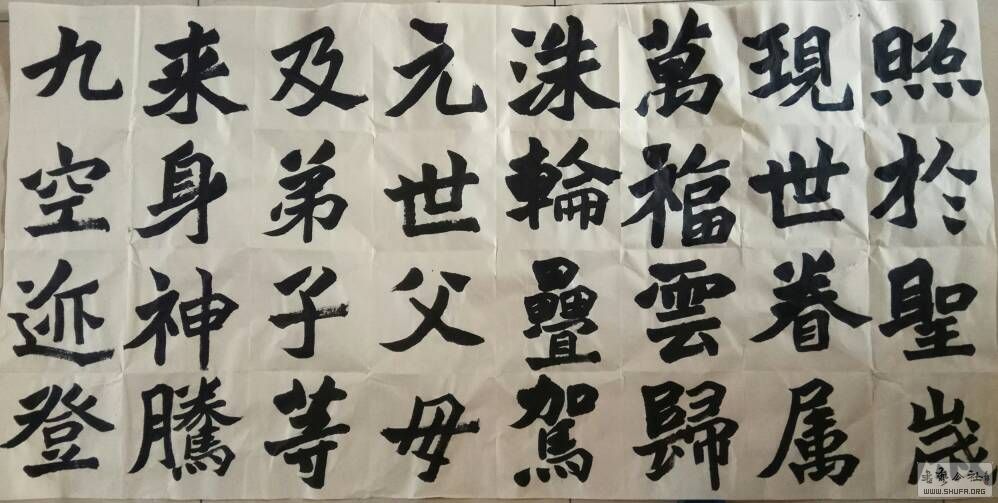 照於聖歲
現世眷属
萬福雲歸
洙輪疊駕
元世父母
及弟子等
来身神騰
九空迹登
WWW.SHUFA.ORG